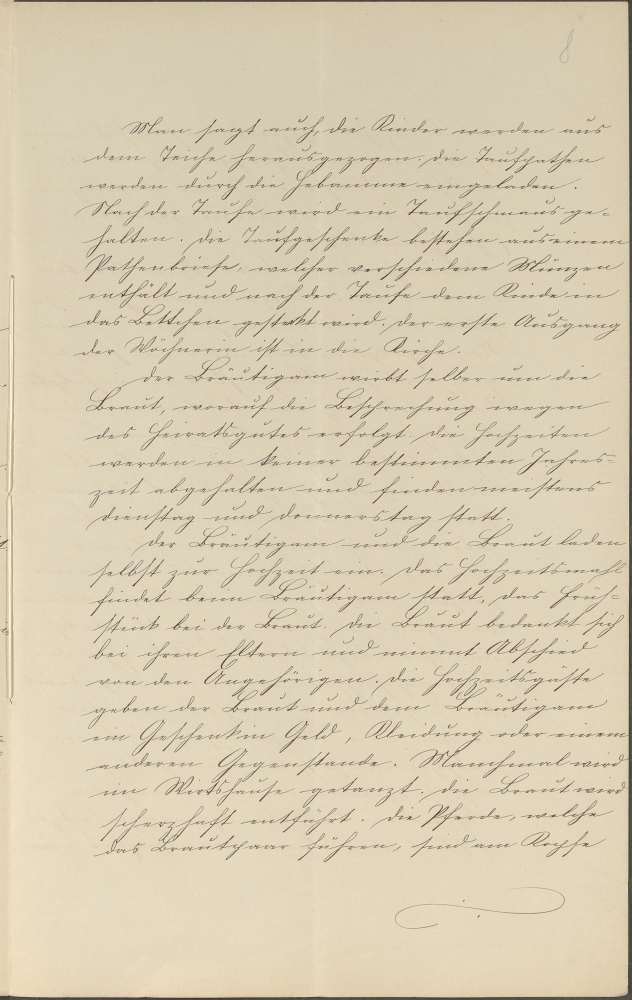 8
Man sagt auch, die Kinder werden aus
dem Teiche herausgezogen. Die Taufpathen
werden durch die Hebamme eingeladen.
Nach der Taufe wird ein Taufschmaus ge-
halten. Die Taufgeschenke bestehen aus einem
Pathenbriefe, welcher verschiedene Münzen
enthält und nach der Taufe dem Kinde in
das Bettchen gesteckt wird. Der erste Ausgang
der Wöchnerin ist in die Kirche.
Der Bräutigam wirbt selber um die
Braut, worauf die Besprechung wegen
des Heiratsgutes erfolgt. Die Hochzeiten
werden in keiner bestimmten Jahres-
zeit abgehalten und finden meistens
Dienstag und Donnerstag statt.
Der Bräutigam und die Braut laden
selbst zur Hochzeit ein. Das Hochzeitsmahl
findet beim Bräutigam statt, das Früh-
stück bei der Braut. Die Braut bedankt sich
bei ihren Eltern und nimmt Abschied
von den Angehörigen. Die Hochzeitsgäste
geben der Braut und dem Bräutigam
ein Geschenk in Geld, Kleidung oder einem
anderen Gegenstande. Manchmal wird
im Wirtshause getanzt. Die Braut wird
scherzhaft entführt. Die Pferde, welche
das Brautpaar führen, sind am Kopfe